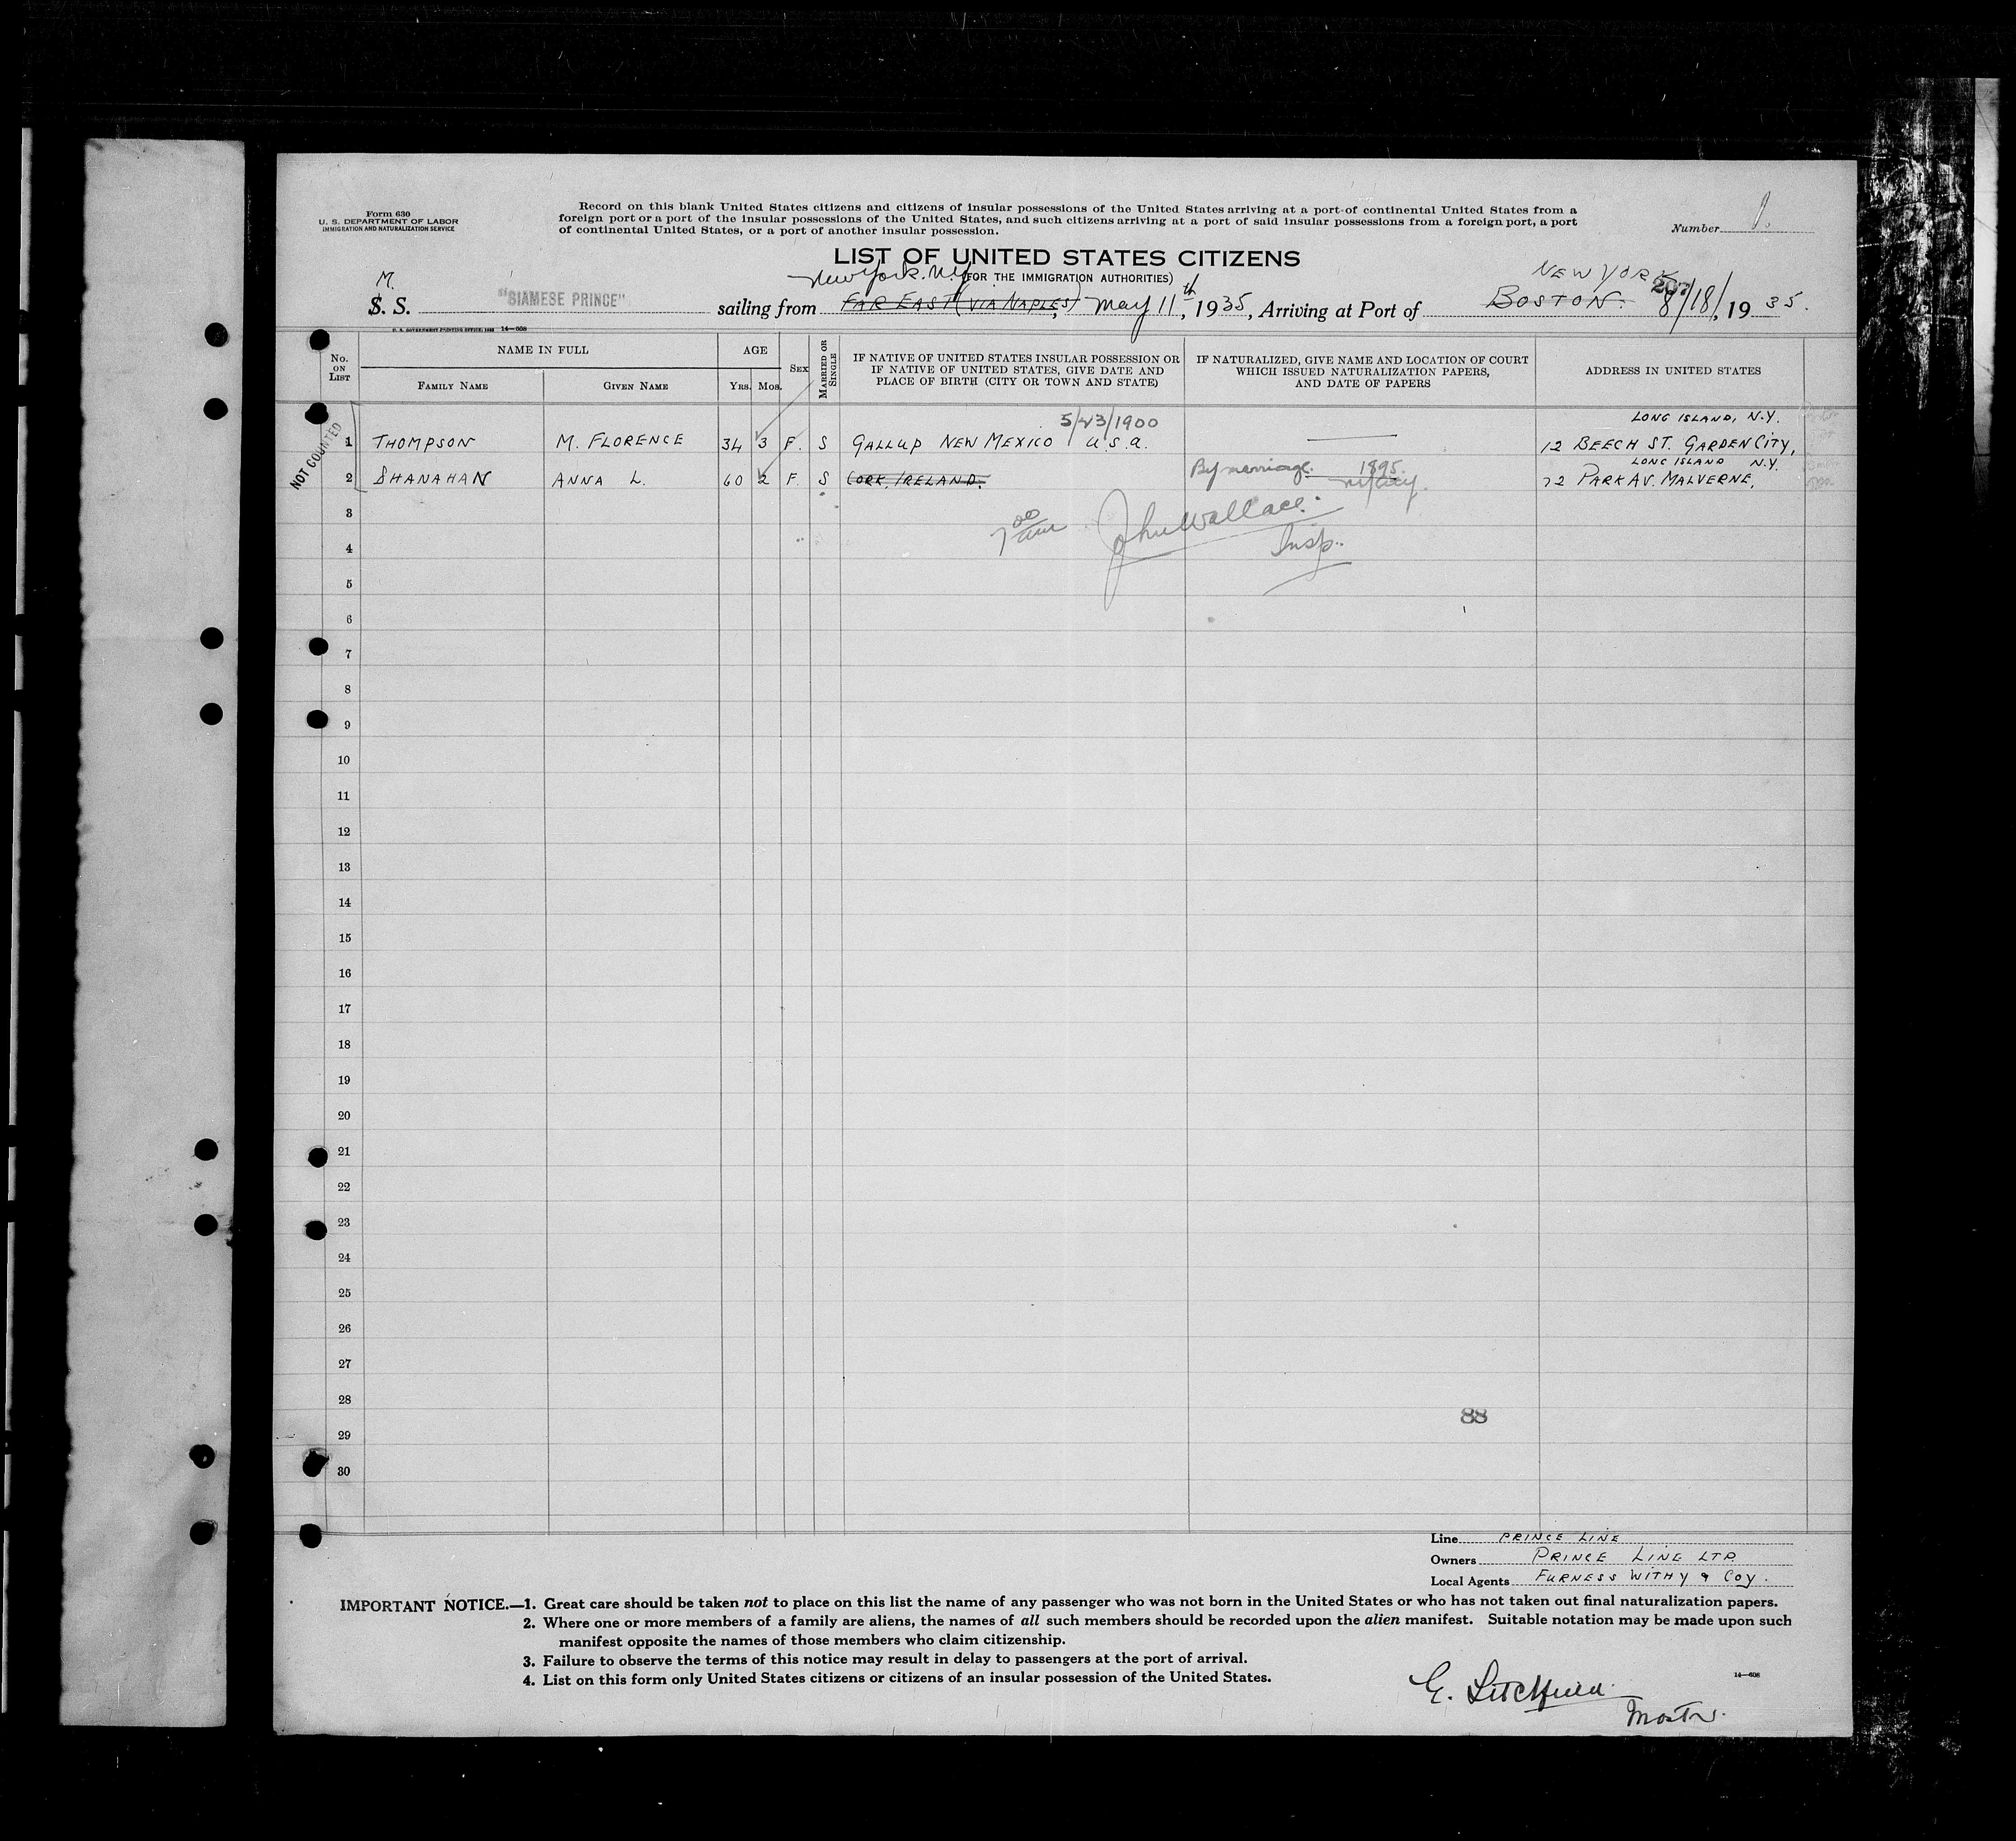 Form 630
U. S. DEPARTMENT OF LABOR
IMMIGRATION AND NATURALIZATION SERVICE
Record on this blank United States citizens and citizens of insular possessions of the United States arriving at a port of continental United States from a
foreign port or a port of the insular possessions of the United States, and such citizens arriving at a port of said insular possessions from a foreign port, a port
of continental United States, or a port of another insular possession.
Number 1.
LIST OF UNITED STATES CITIZENS
(FOR THE IMMIGRATION AUTHORITIES)
New York. N.Y.
NEW YORK
207
M.
S. S. "SIAMESE PRINCE" sailing from FAR EAST (VIA NAPLES), May 11th, 1935, Arriving at Port of BOSTON. 8/18/, 1935.
U. S. GOVERNMENT PRINTING OFFICE: 1933 14—608
No. ON LIST
NAME IN FULL
FAMILY NAME
GIVEN NAME
AGE
YRS. MOS.
SEX
MARRIED OR SINGLE
IF NATIVE OF UNITED STATES INSULAR POSSESSION OR
IF NATIVE OF UNITED STATES, GIVE DATE AND
PLACE OF BIRTH (CITY OR TOWN AND STATE)
IF NATURALIZED, GIVE NAME AND LOCATION OF COURT
WHICH ISSUED NATURALIZATION PAPERS,
AND DATE OF PAPERS
ADDRESS IN UNITED STATES
NOT COUNTED
5/23/1900
LONG ISLAND, N.Y.
1 THOMPSON M. FLORENCE 34 3 F. S GALLUP NEW MEXICO U.S.A. 12 BEECH ST. GARDEN CITY,
LONG ISLAND N.Y.
2 SHANAHAN ANNA L. 60 2 F. S CORK, IRELAND. By marriage. 1895. 72 PARK AV. MALVERNE,
NY City.
3
7 00 am John Wallace.
4
Insp.
5
6
7
8
9
10
11
12
13
14
15
16
17
18
19
20
21
22
23
24
25
26
27
28
88
29
30
Line PRINCE LINE
Owners PRINCE LINE LTD
Local Agents FURNESS WITHY & COY.
IMPORTANT NOTICE.—1. Great care should be taken not to place on this list the name of any passenger who was not born in the United States or who has not taken out final naturalization papers.
2. Where one or more members of a family are aliens, the names of all such members should be recorded upon the alien manifest. Suitable notation may be made upon such
manifest opposite the names of those members who claim citizenship.
3. Failure to observe the terms of this notice may result in delay to passengers at the port of arrival.
4. List on this form only United States citizens or citizens of an insular possession of the United States.
14—608
E. Litchfield.
Mastr.